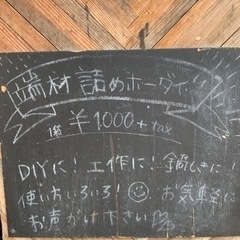 端材 詰めホーダイ
1袋 ¥1000+tax
DIYに！工作に！鍋しきに！
使いいろいろ！お気軽に
お声がけ下さい